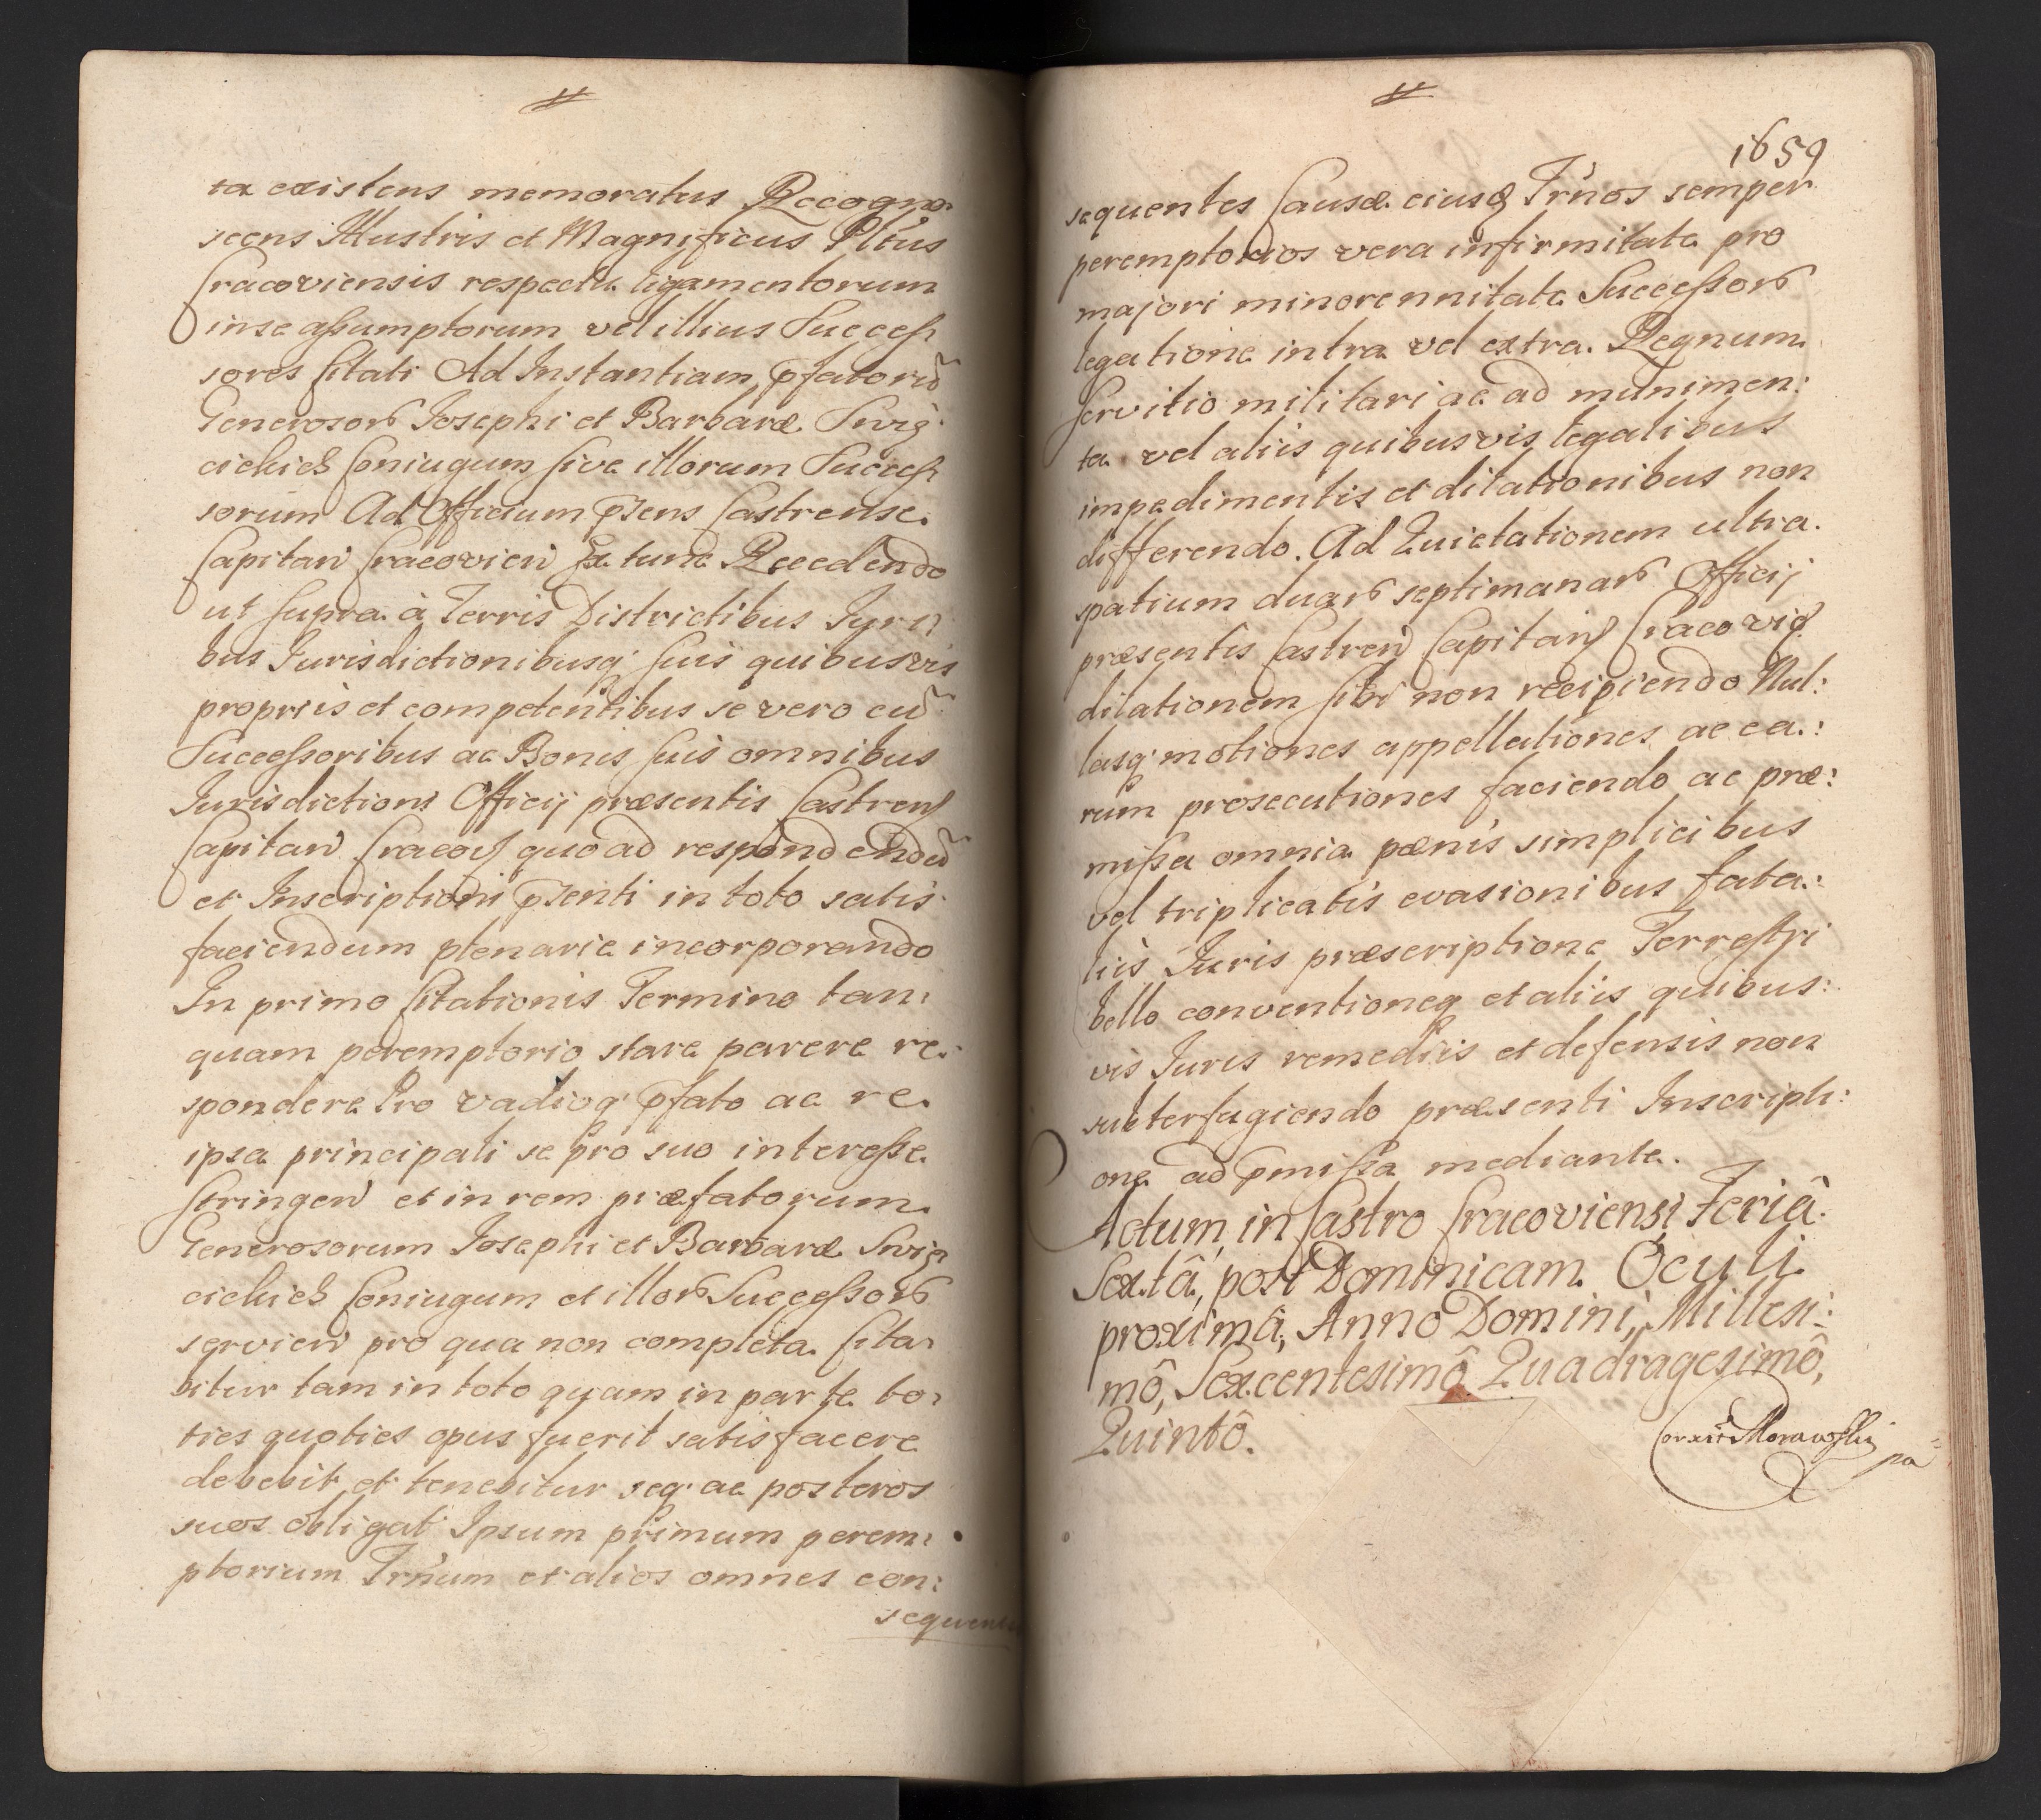 ta existens memoratus Recogno:
scens Illustris et Magnificus Pltũs
Cracoviensis respectu ligamentorum
in se assumptorum vel illius Succes:
sores Citati Ad Instantiam pfatorũ
Generosor Josephi et Barbaræ Swię:
cickich Coniugum sive illorum Succes:
sorum Ad Officium psens Castrense
Capitan Cracovien Ex tunc Recedendo
ut supra à Terris Districtibus Juri:
bus Jurisdictionibusq suis quibusvis
propriis et competentibus se vero cũ
Successoribus ac Bonis suis omnibus
Jurisdictioni Officij præsentis Castren
Capitan Cracov quoad respondendũ
et Inscriptioni psenti in toto satis:
faciendum plenarie incorporando
In primo Citationis Termino tan:
quam peremptorio stare parere re:
spondere Pro vadioq pfato ac re
ipsa principali se pro suo interesse
stringen et in rem præfatorum
Generosorum Josephi et Barbaræ Swię:
cickich Coniugum et illor Successor
servien pro qua non completa Cita:
bitur tam in toto quam in parte to:
ties quoties opus fuerit satisfacere
debebit et tenebitur seq ac posteros
suos obligat Ipsum primum perem:
ptorium Trñum et alios omnes con:
sequentes
1659
sequentes Causæ eiusq Trños semper
peremptorios vera infirmitate pro
majori minorennitate Successor
legatione intra vel extra Regnum
servitio militari ac ad munimen:
ta vel aliis quibusvis legalibus
impedimentis et dilationibus non
differendo. Ad Quietationem ultra
spatium duar septimanar Officij
præsentis Castren Capitan Cracovie
dilationem sibi non recipiendo Nul:
lasq motiones appellationes ac ea:
rum prosecutiones faciendo ac præ:
missa omnia pænis simplicibus
vel triplicatis evasionibus fata:
liis Juris præscriptione Terrestri
bello conventioneq et aliis quibus:
vis Juris remediis et defensis non
subterfugiendo præsenti Inscripti:
one ad pmissa mediante.
Actum in Castro Cracoviensi Feriâ
Sextâ, post Dominicam Oculi
proximâ, Anno Domini, Millesi:
mô, Sexcentesimô Quadragesimô,
Quintô.